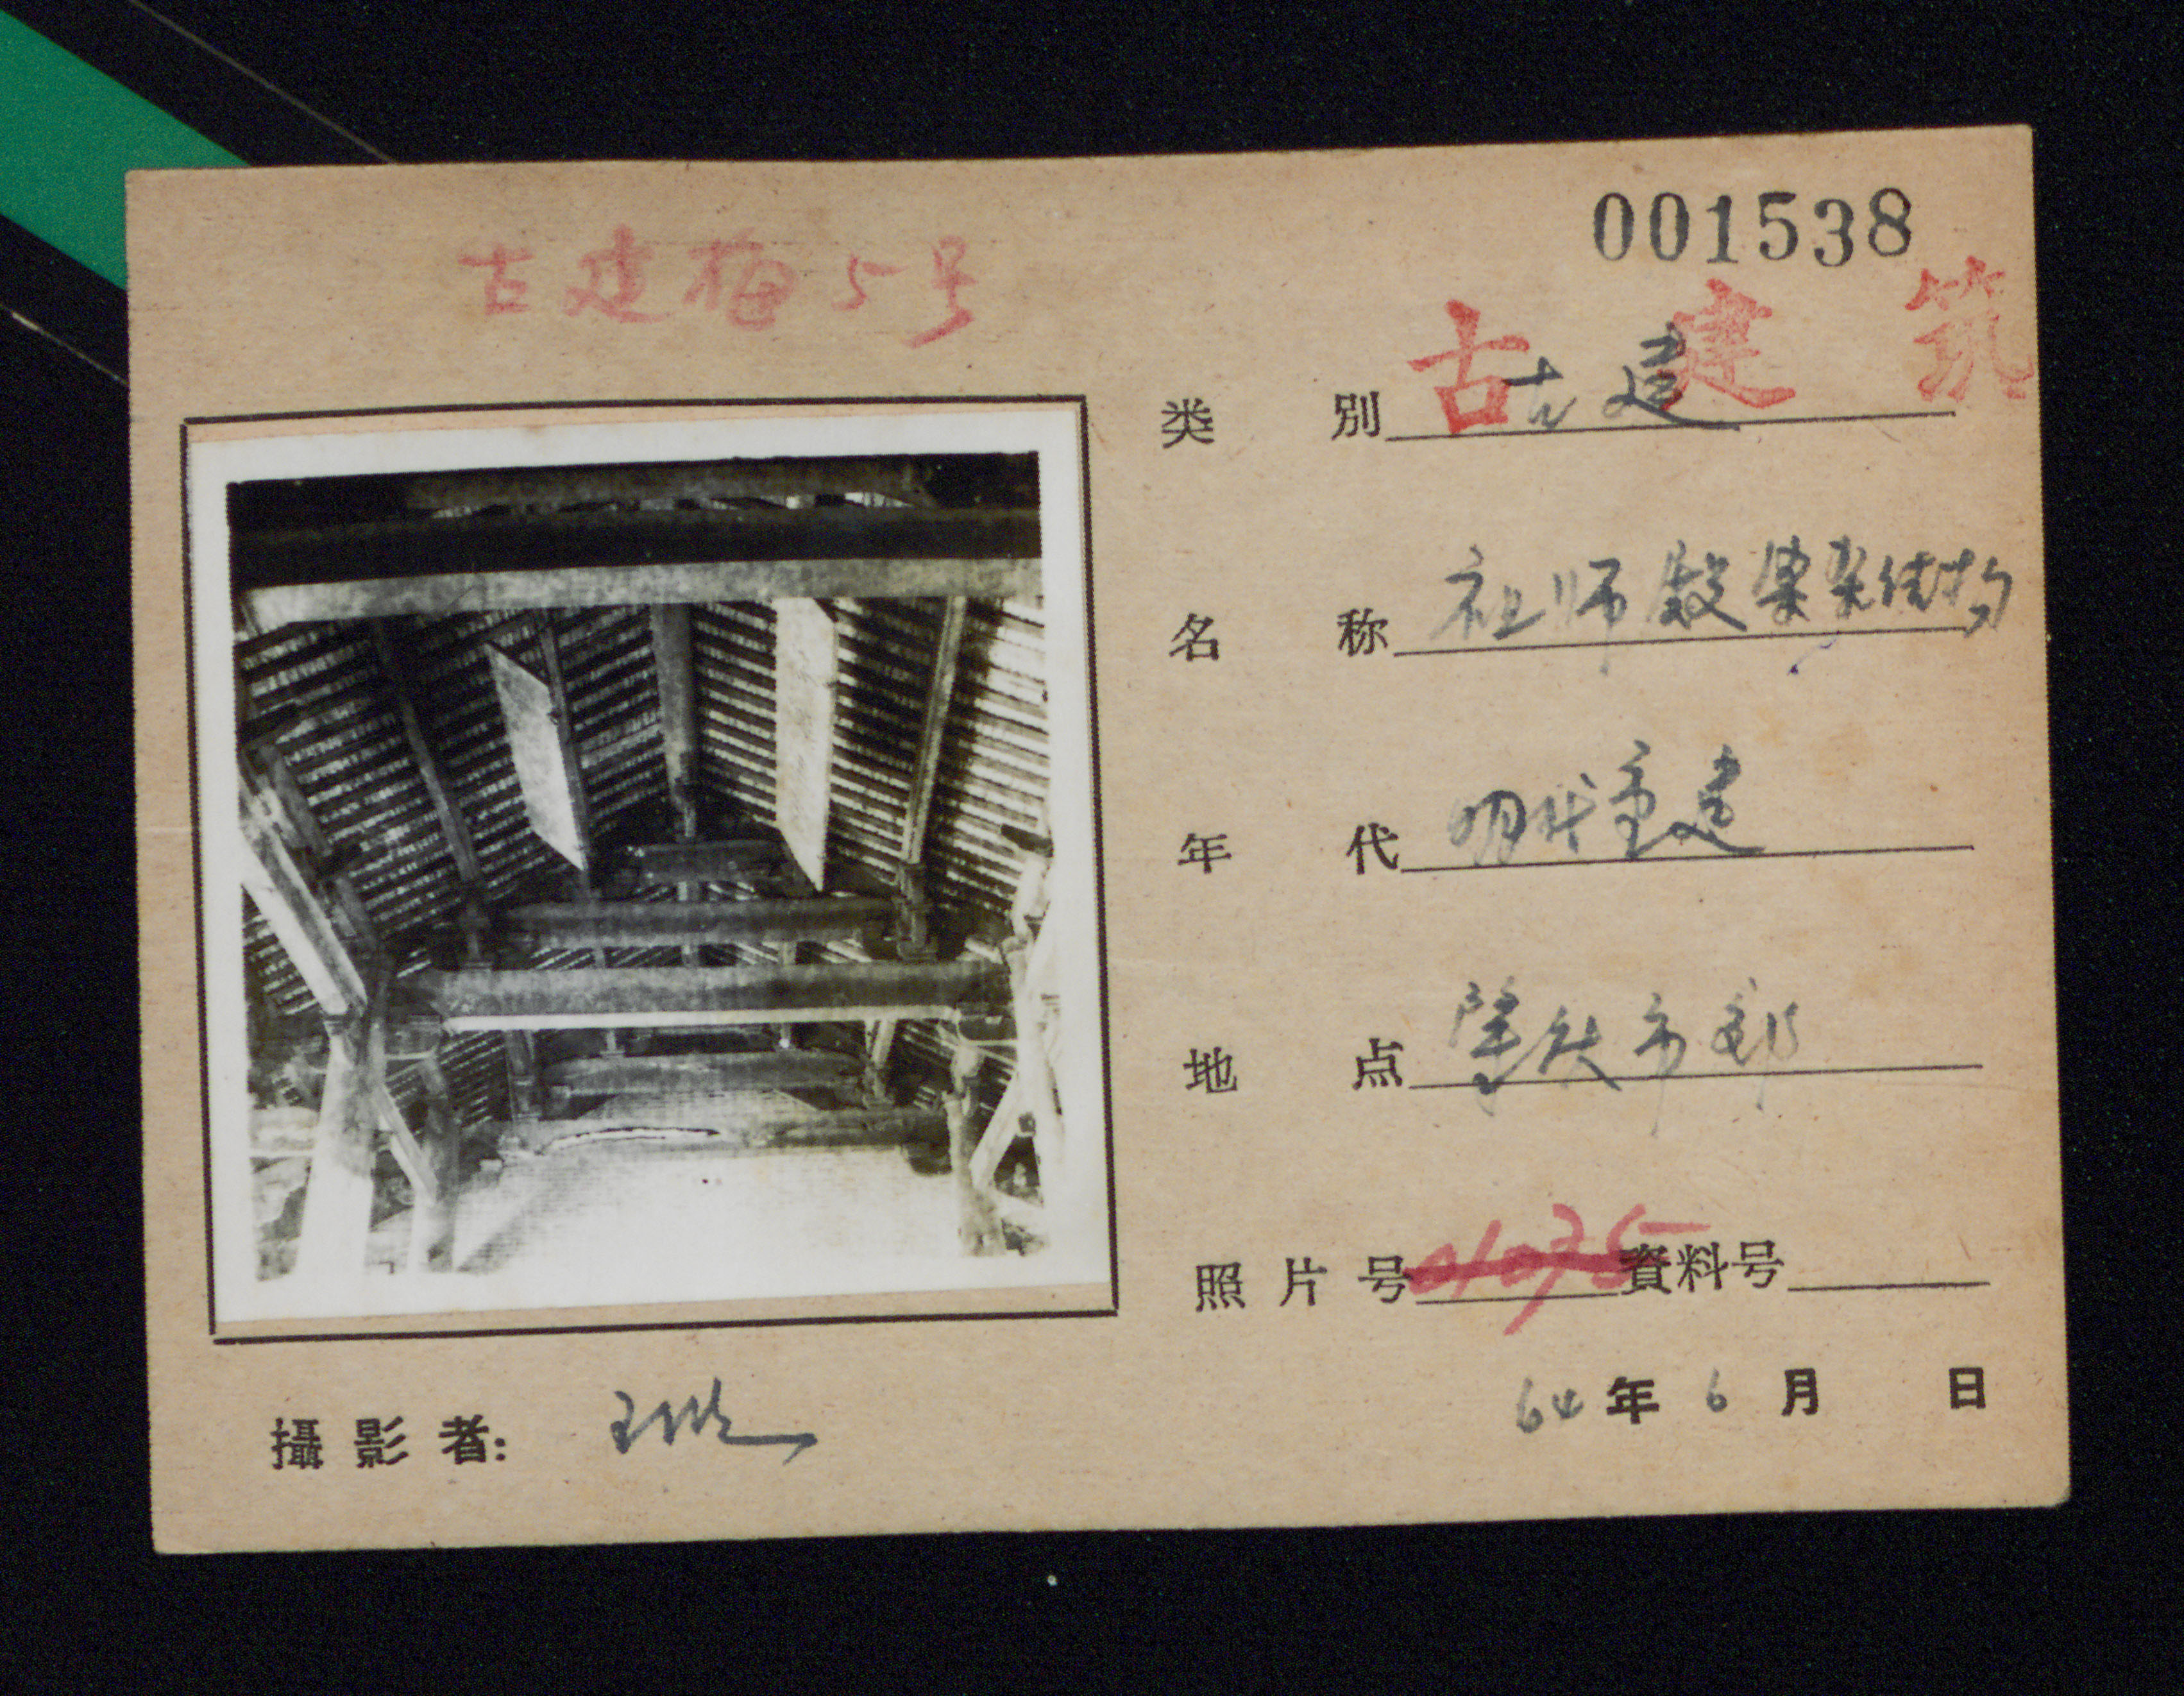 001538
古建梅5号
古建筑
类別 古建
名称 祖师殿梁架结构
年代 明代重建
地点 肇庆市郊
照片号 01075 資料号
64年6月 日
攝影者: 王